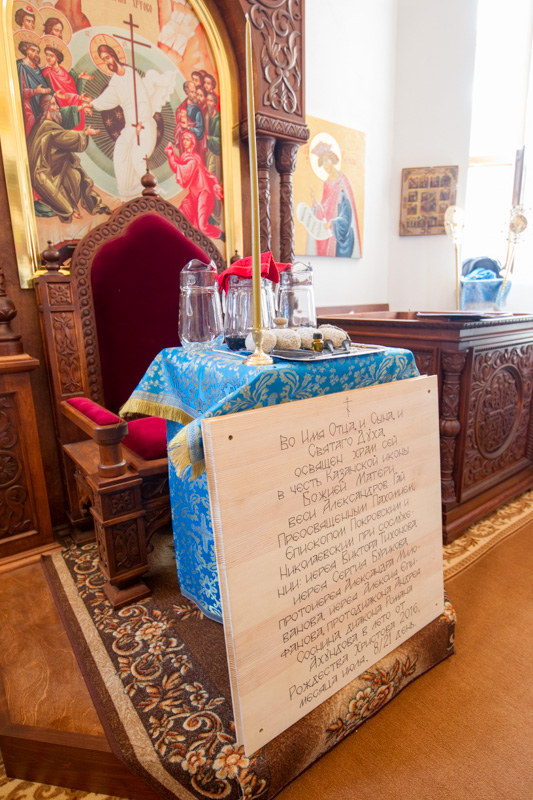 Во Имя Отца, и Сына, и
Святаго Духа,
освящен храм сей
в честь Казанской иконы
Божией Матери,
веси Александров Гай
Преосвященным Пахомием,
Епископом Покровским и
Николаевским при сослуже-
нии: иерея Виктора Тихонова
иерея Сергия Бурцева
протоиерея Александра Мило-
ванова, иерея Алексия Епи-
фанова, протодиакона Андрея
Соснина, диакона Романа
Ахундова в лето от
Рождества Христова 2016,
месяца июля. 8/21 день.